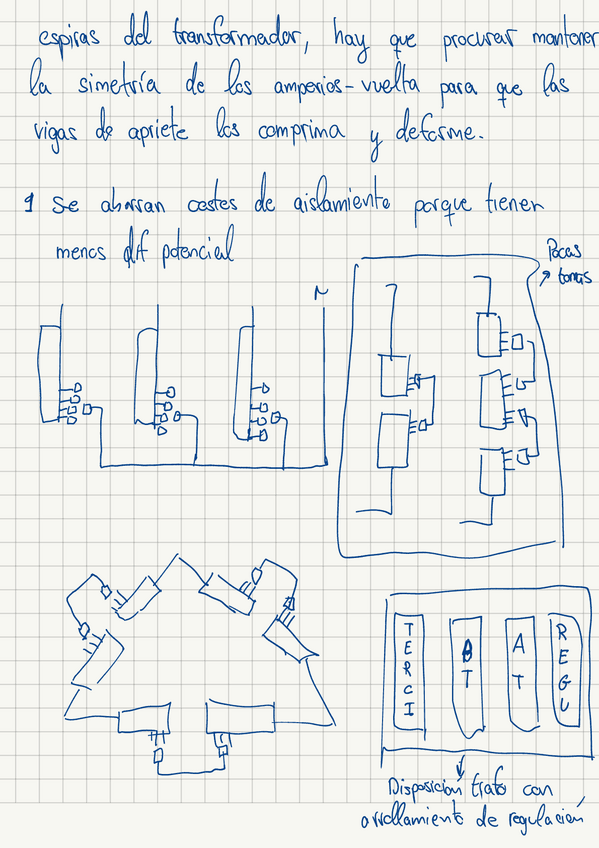 espiras del transformador, hay que procurar mantener
la simetría de los amperios-vuelta para que las
vigas de apriete los comprima y deforme.
1 Se ahorran costes de aislamiento porque tienen
menos dif potencial
Pocas
tomas
N
TERCI
BT
AT
REGU
Disposición trafo con
arrollamiento de regulación